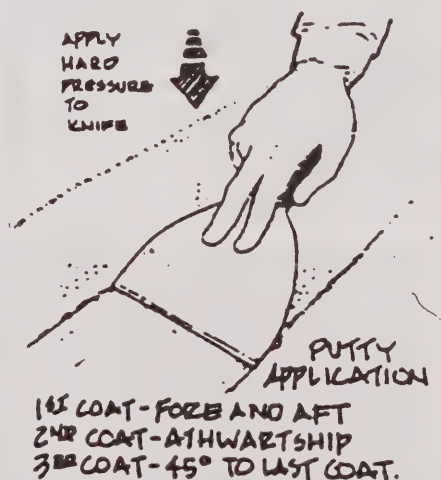 APPLY
HARD
PRESSURE
TO
KNIFE
PUTTY
APPLICATION
1ST COAT-FORE AND AFT
2ND COAT-ATHWARTSHIP
3RD COAT-45° TO LAST COAT.